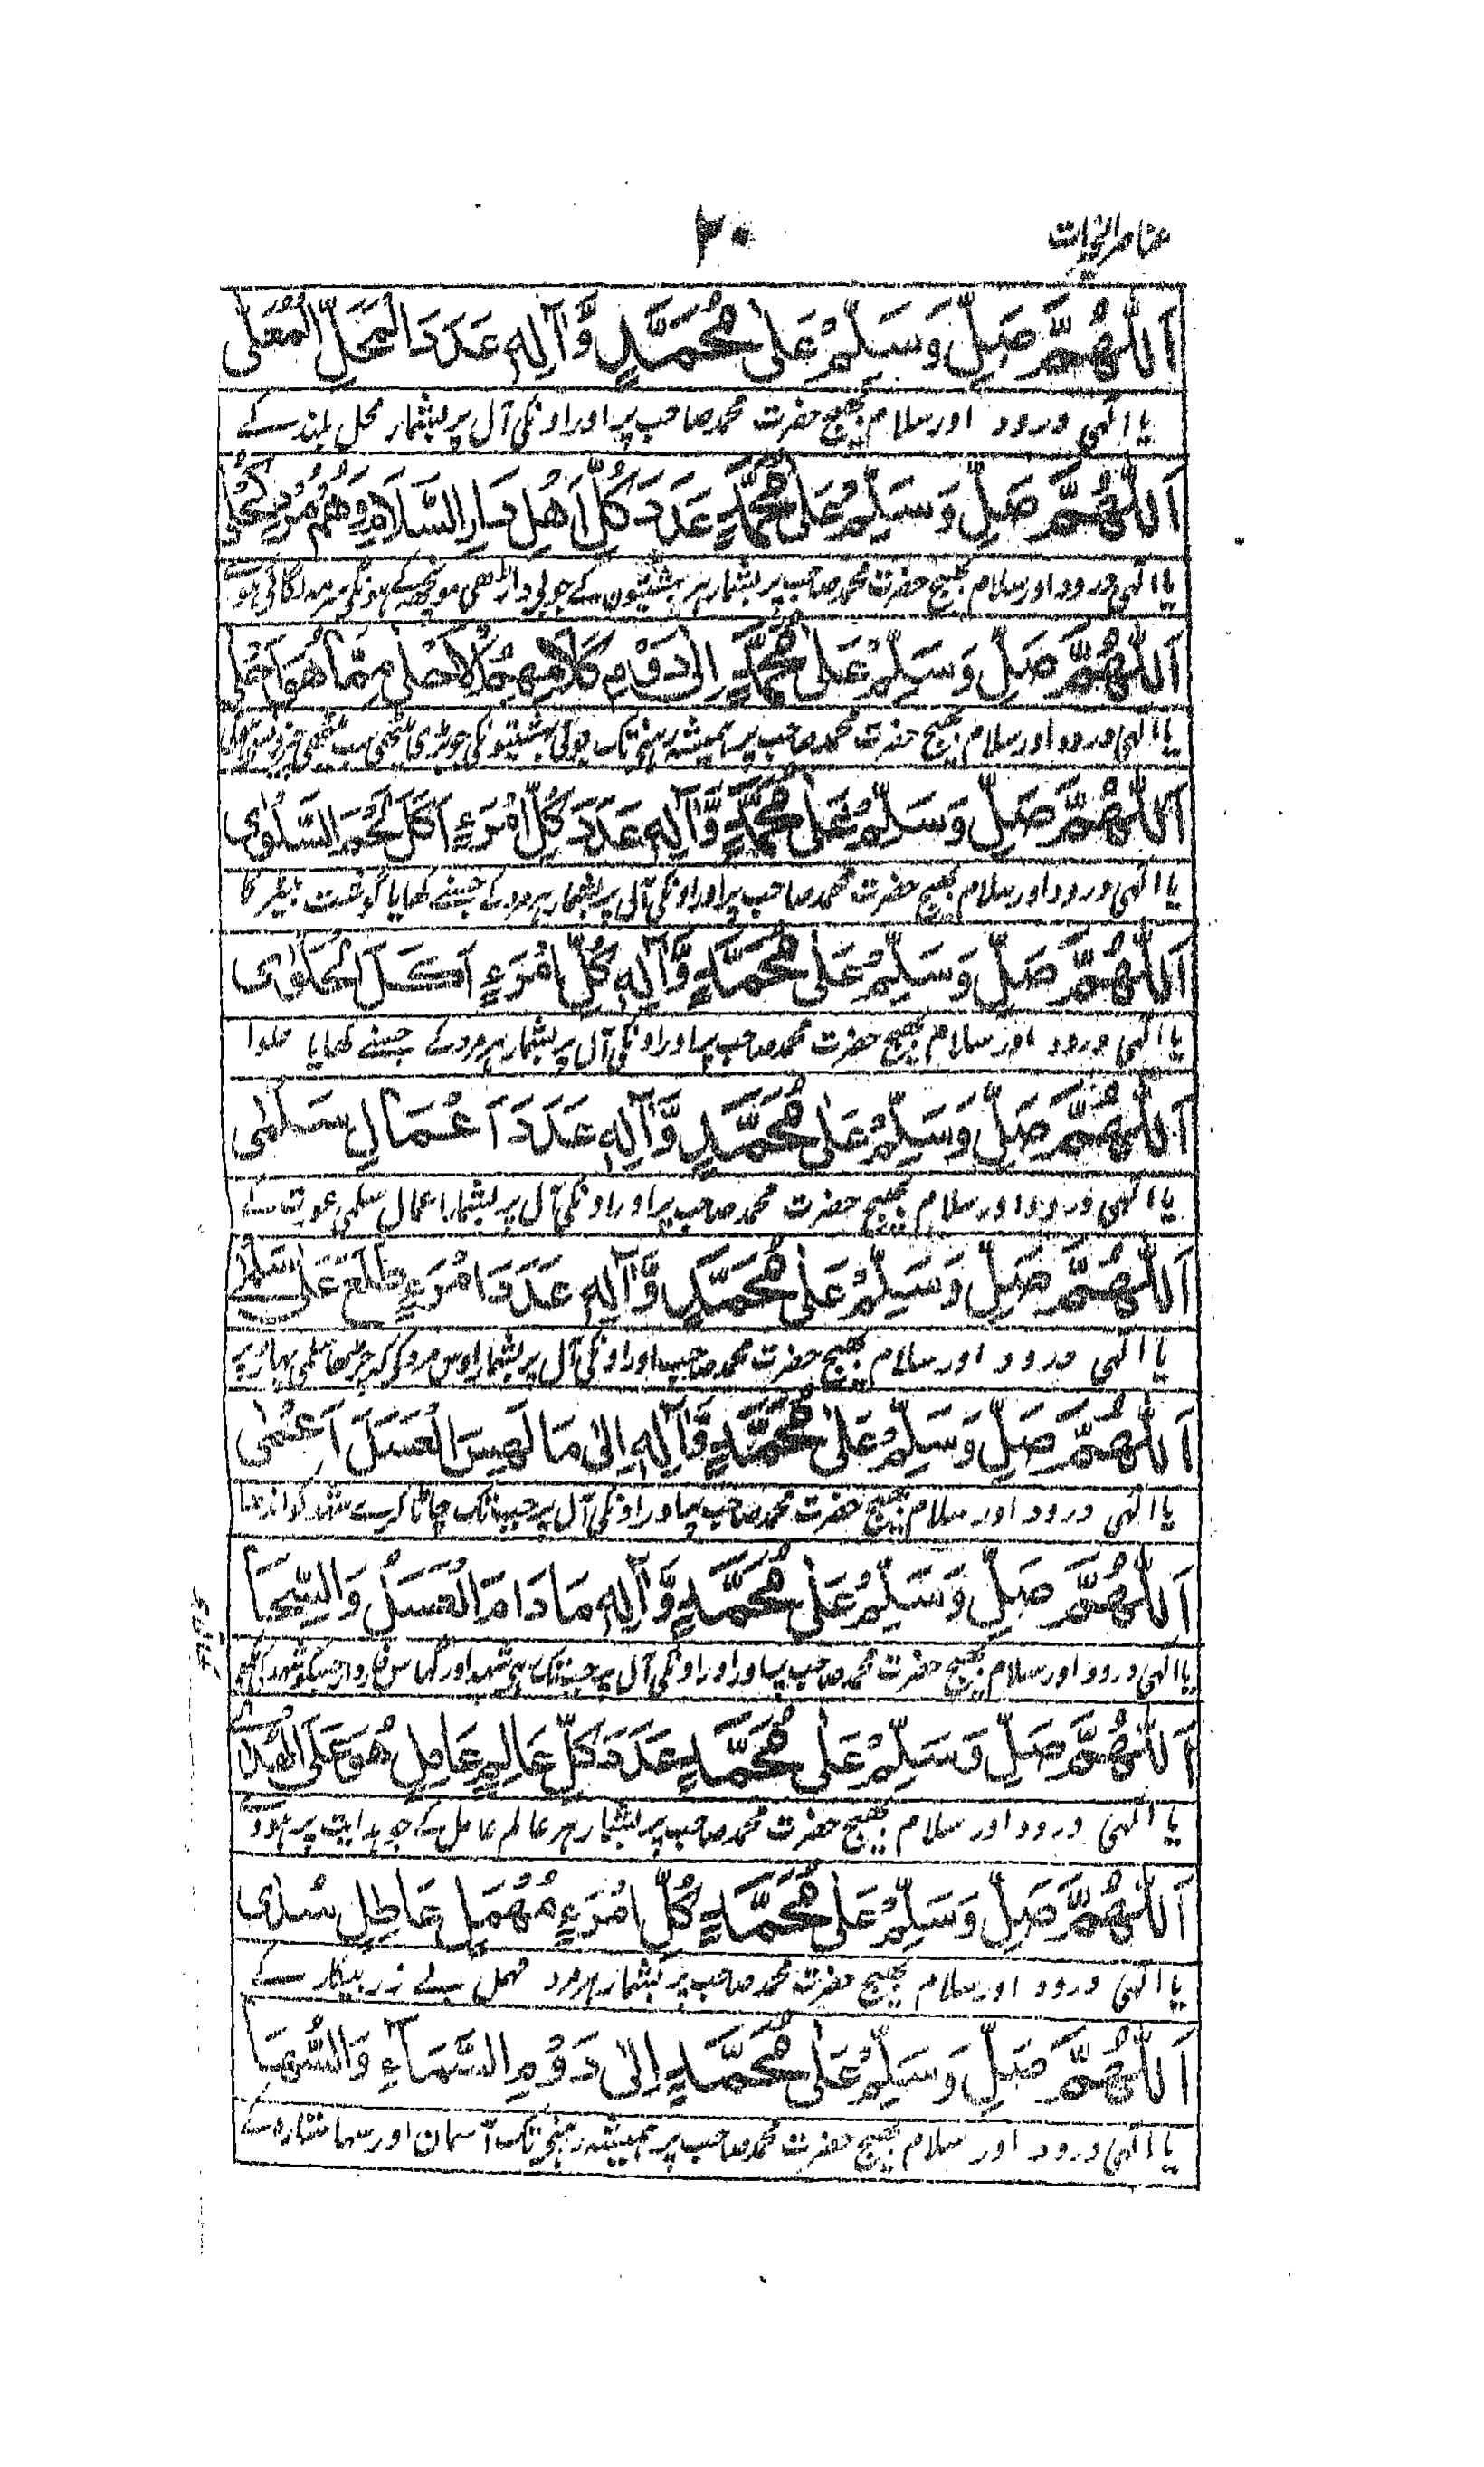 عناصر الخیرات
۲۰
اَللّٰهُمَّ صَلِّ وَسَلِّمْ عَلٰى مُحَمَّدٍ وَّاٰلِهٖ عَدَدَ الْمَحَلِّ الْمُعَلّٰى
یا الٰہی درود اور سلام بھیج حضرت محمد صاحب پر اور اونکی آل پر بشمار محل بلند کے
اَللّٰهُمَّ صَلِّ وَسَلِّمْ عَلٰى مُحَمَّدٍ عَدَدَ كُلِّ اَهْلِ دَارِ السَّلَامِ وَهُمْ مُرْدٌ كُحْلٌ
یا الٰہی درود اور سلام بھیج حضرت محمد صاحب پر بشمار ہر بہشتیوں کے جو بی داڑھی مونچھ کے ہونگی سرمہ لگائی ہوئے
اَللّٰهُمَّ صَلِّ وَسَلِّمْ عَلٰى مُحَمَّدٍ اِلٰى دَوْمِ كَلَامِهِمُ الْاَحْلٰى مِمَّا هُوَ اَحْلٰى
یا الٰہی درود اور سلام بھیج حضرت محمد صاحب پر ہمیشہ رہنے تک بولی بہشتیونکی جو بڑی میٹھی سب میٹھی
اَللّٰهُمَّ صَلِّ وَسَلِّمْ عَلٰى مُحَمَّدٍ وَّاٰلِهٖ عَدَدَ كُلِّ امْرَءٍ اَكَلَ لَحْمَ السَّلْوٰى
یا الٰہی درود اور سلام بھیج حضرت محمد صاحب پر اور اونکی آل پر بشمار ہر مرد کے جسنے کھایا گوشت بٹیر کا
اَللّٰهُمَّ صَلِّ وَسَلِّمْ عَلٰى مُحَمَّدٍ وَّاٰلِهٖ كُلِّ امْرَءٍ اَكَلَ الْحَلْوٰى
یا الٰہی درود اور سلام بھیج حضرت محمد صاحب پر اور اونکی آل پر بشمار ہر مرد کے جسنے کھایا حلوا
اَللّٰهُمَّ صَلِّ وَسَلِّمْ عَلٰى مُحَمَّدٍ وَّاٰلِهٖ عَدَدَ اَعْمَالِ سَلْمٰى
یا الٰہی درود اور سلام بھیج حضرت محمد صاحب پر اور اونکی آل پر بشمار اعمال سلمی عورت کے
اَللّٰهُمَّ صَلِّ وَسَلِّمْ عَلٰى مُحَمَّدٍ وَّاٰلِهٖ عَدَدَ امْرَءٍ طَلَعَ عَلٰى سَلْمٰى
یا الٰہی درود اور سلام بھیج حضرت محمد صاحب اور اونکی آل پر بشمار اوس مرد کی کہ چڑھا سلمی پہاڑ پر
اَللّٰهُمَّ صَلِّ وَسَلِّمْ عَلٰى مُحَمَّدٍ وَّاٰلِهٖ اِلٰى مَا لَهِسَ الْعَسَلَ اَعْمٰى
یا الٰہی درود اور سلام بھیج حضرت محمد صاحب پر اور اونکی آل پر جب تک چاٹا کرے شہد کو اندھا
اَللّٰهُمَّ صَلِّ وَسَلِّمْ عَلٰى مُحَمَّدٍ وَّاٰلِهٖ مَا دَامَ الْعَسَلُ وَالسِّحَا
یا الٰہی درود اور سلام بھیج حضرت محمد صاحب پر اور اونکی آل پر جب تک ہی شہد اور گھاس
اَللّٰهُمَّ صَلِّ وَسَلِّمْ عَلٰى مُحَمَّدٍ عَدَدَ كُلِّ عَالِمٍ عَامِلٍ هُوَ عَلَى الْهُدٰى
یا الٰہی درود اور سلام بھیج حضرت محمد صاحب پر بشمار ہر عالم عامل کے جو ہدایت پر ہووے
اَللّٰهُمَّ صَلِّ وَسَلِّمْ عَلٰى مُحَمَّدٍ كُلِّ امْرَءٍ مُهْمَلٍ عَاطِلٍ سُدٰى
یا الٰہی درود اور سلام بھیج حضرت محمد صاحب پر بشمار ہر مرد مہمل بے زر بیکار کے
اَللّٰهُمَّ صَلِّ وَسَلِّمْ عَلٰى مُحَمَّدٍ اِلٰى دَوْمِ السَّمَآءِ وَالسُّهَا
یا الٰہی درود اور سلام بھیج حضرت محمد صاحب پر ہمیشہ رہنی تک آسمان اور سہا ستارہ کے